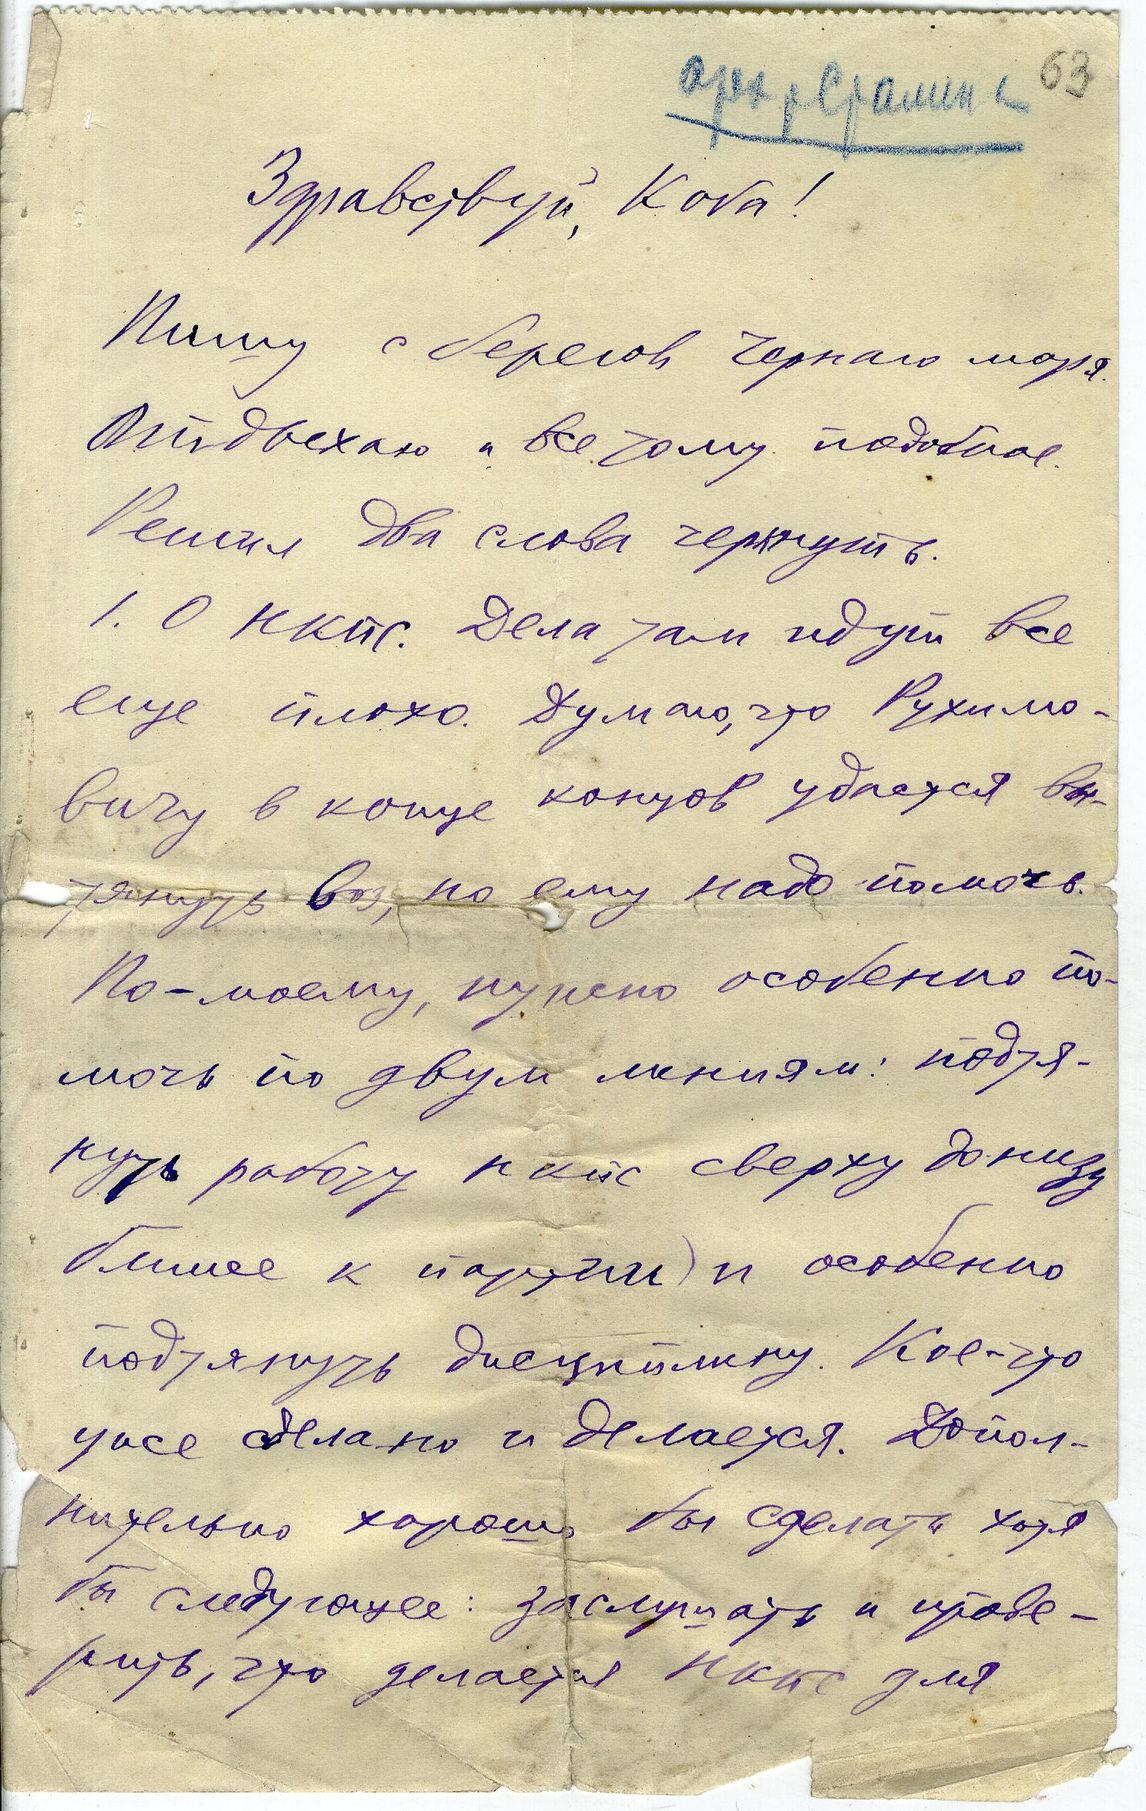 арх. Сталина
63
Здравствуй, Коба!
Пишу с берегов Черного моря.
Отдыхаю и все тому подобное.
Решил два слова черкнуть.
1. О НКПС. Дела там идут все
еще плохо. Думаю, что Рухимо-
вичу в конце концов удастся вы-
тянуть воз, но ему надо помочь.
По-моему, нужно особенно по-
мочь по двум линиям: подтя-
нуть работу НКПС сверху донизу
ближе к партии) и особенно
подтянуть дисциплину. Кое-что
уже сделано и делается. Допол-
нительно хорошо бы сделать хотя
бы следующее: заслушать и прове-
рить, что делается НКПС для